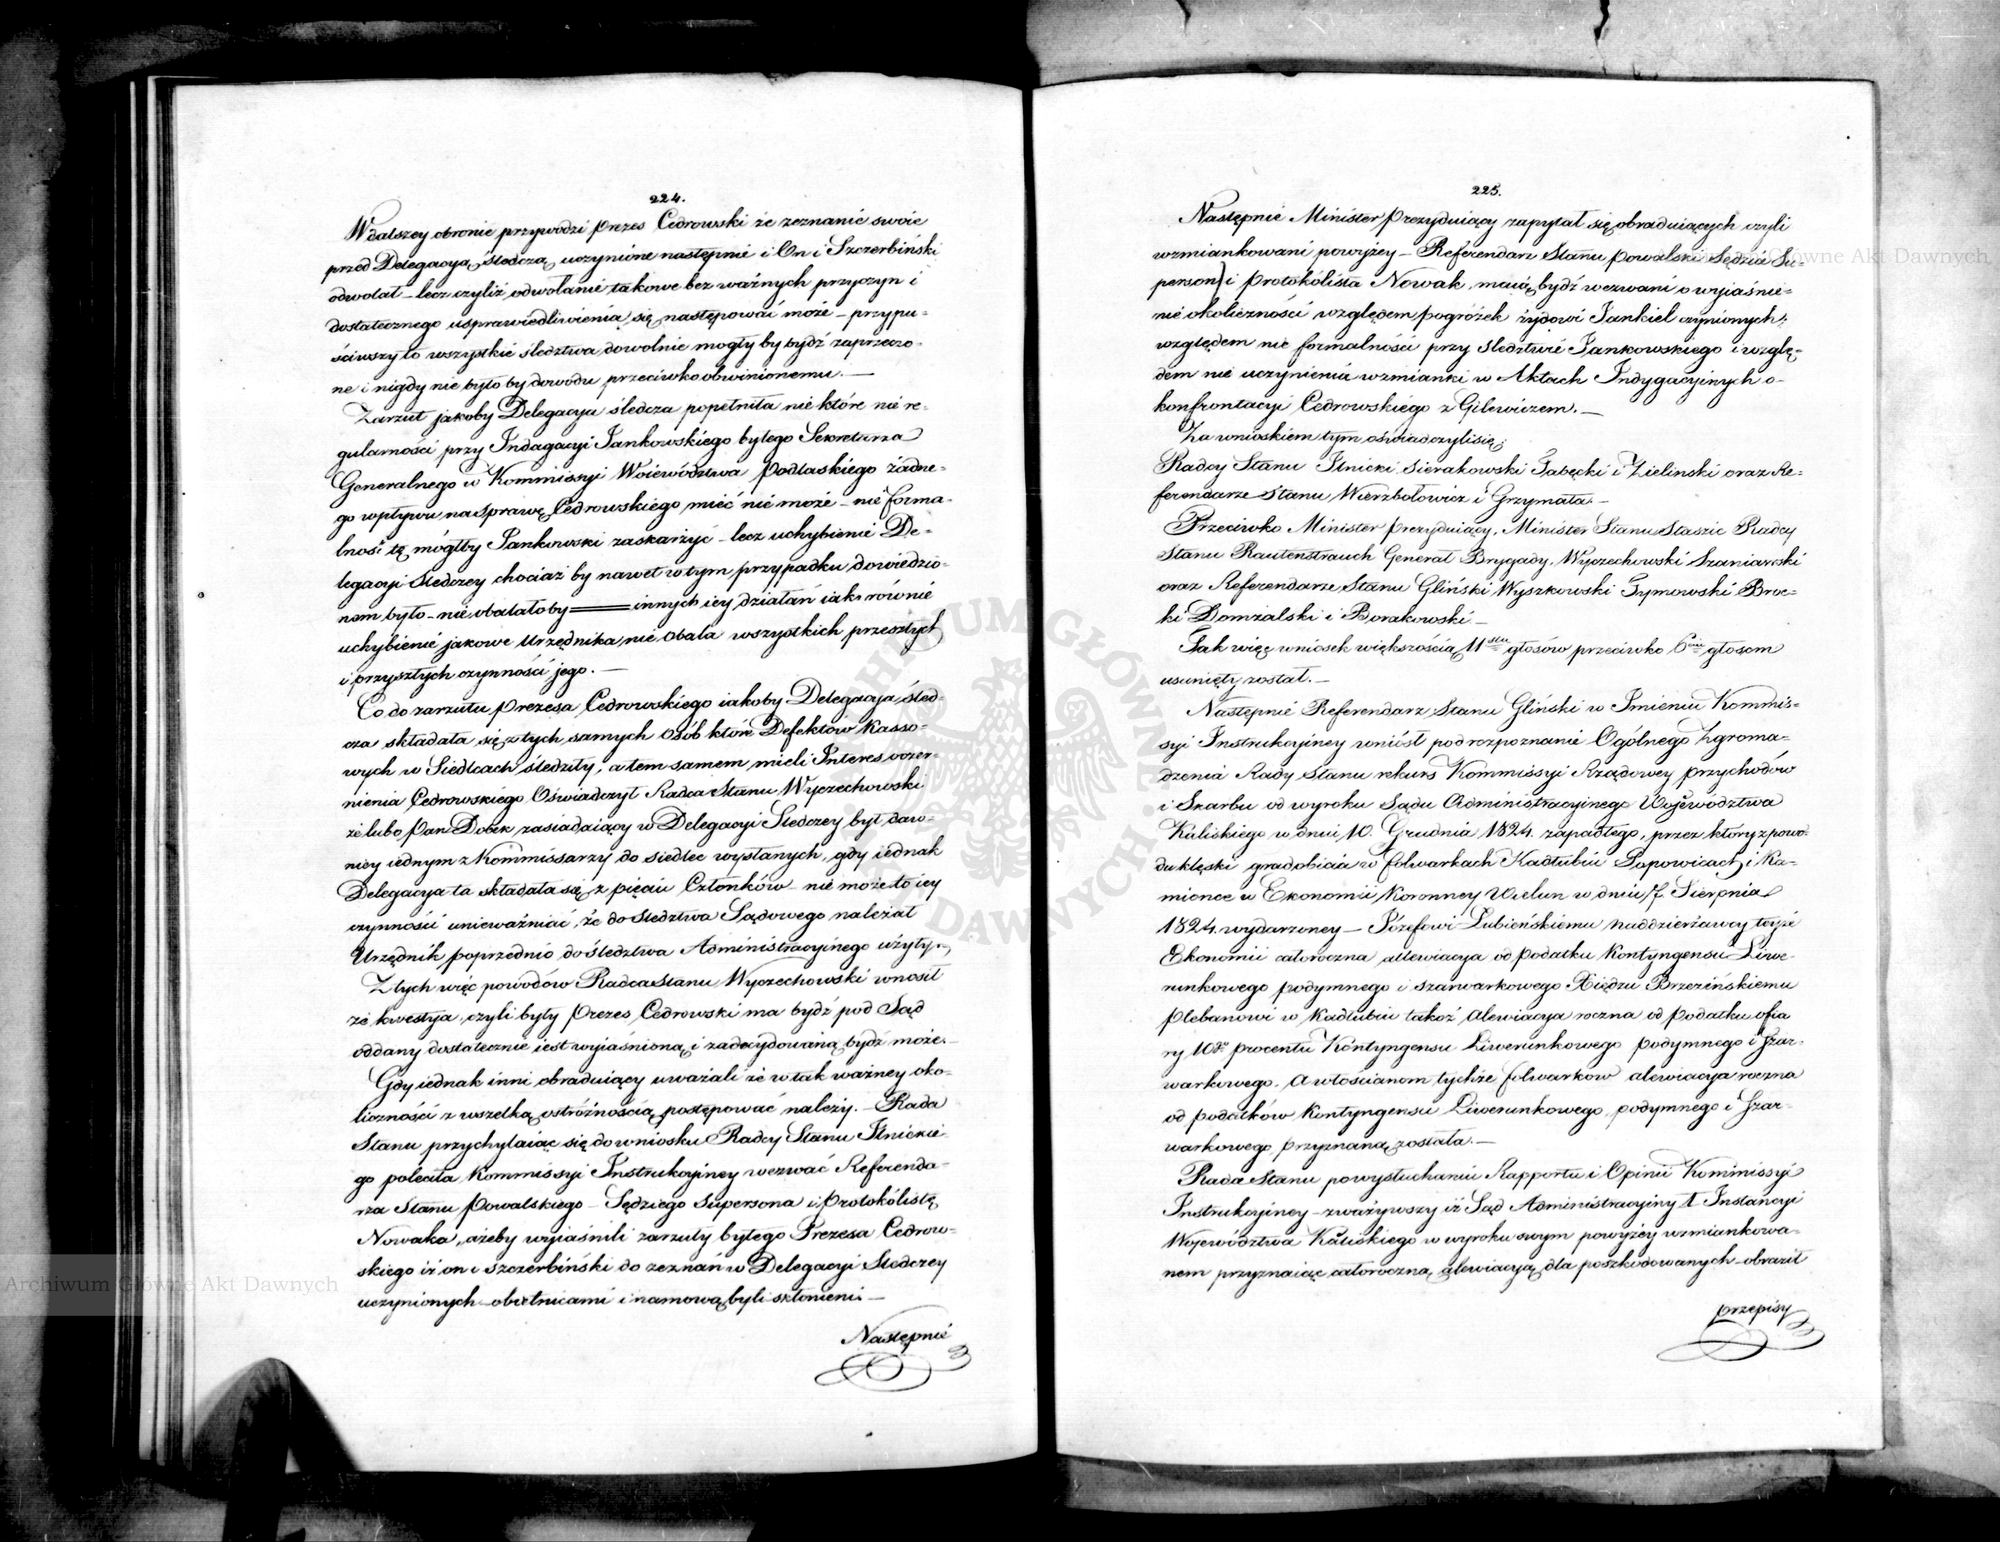 224.
W dalszey obronie przywodzi Prezes Cedrowski że zeznanie swoie
przed Delegacyą śledczą uczynione następnie i On i Szczerbiński
odwołał – lecz czyliż odwołanie takowe bez ważnych przyczyn i
dostatecznego usprawiedliwienia się następować może – przypu-
ściwszy to wszystkie śledztwa dowolnie mogły by bydź zaprzeczo-
ne i nigdy nie było by dowodu przeciwko obwinionemu. —
Zarzut jakoby Delegacya śledcza popełniła nie które nie re-
gularności przy Indagacyi Jankowskiego byłego Sekretarza
Generalnego w Kommissyi Woiewództwa Podlaskiego żadne-
go wpływu na sprawę Cedrowskiego mieć nie może – nie forma-
lność tę mógłby Jankowski zaskarżyć – lecz uchybienie De-
legacyi śledczey chociaż by nawet w tym przypadku dowiedzio-
nem było – nie obalało by ═══ innych iey działań iak równie
uchybienie jakowe Urzędnika nie obala wszystkich przeszłych
i przyszłych czynności jego. —
Co do zarzutu Prezesa Cedrowskiego iakoby Delegacya śled-
cza składała się z tych samych osób które Defektów Kasso-
wych w Siedlcach śledziły, a tem samem mieli Interes oczer-
nienia Cedrowskiego Oświadczył Radca Stanu Wyczechowski
że lubo Pan Dobek zasiadaiący w Delegacyi Śledczey był daw-
niey iednym z Kommissarzy do Siedlec wysłanych, gdy iednak
Delegacya ta składała się z pięciu Członków – nie może to iey
czynności unieważniać, że do śledztwa Sądowego należał
Urzędnik poprzednio do śledztwa Administracyinego użyty.
Z tych więc powodów Radca Stanu Wyczechowski wnosił
że kwestya czyli były Prezes Cedrowski ma bydź pod Sąd
oddany dostatecznie iest wyiaśnioną i zadecydowaną bydź może. –
Gdy iednak inni obraduiący uważali że w tak ważney oko-
liczności z wszelką ostróżnością postępować należy. – Rada
Stanu przychylaiąc się do wniosku Radcy Stanu Ilnickie
go poleciła Kommissyi Instrukcyiney wezwać Referenda-
rza Stanu Powalskiego – Sędziego Supersona i Protokólistę
Nowaka, ażeby wyiaśnili zarzuty byłego Prezesa Cedrow-
skiego iż on i Szczerbiński do zeznań w Delegacyi Śledczey
uczynionych – obietnicami i namową byli skłonieni. —
Następnie
225.
Następnie Minister Prezyduiący zapytał się obraduiących czyli
wzmiankowani powyżey – Referendarz Stanu Powalski Sędzia Su-
person i Protokólista Nowak, maią bydź wezwani o wyiaśnie-
nie okoliczności względem pogróżek żydowi Jankiel czynionych;
względem nie formalności przy śledztwie Jankowskiego i wzglę-
dem nie uczynienia wzmianki w Aktach Indygacyinych o-
konfrontacyi Cedrowskiego z Gilewiczem. —
Za wnioskiem tym oświadczyli się;
Radcy Stanu Ilnicki Sierakowski Gałęcki i Zieliński oraz Re-
ferendarze Stanu Wierzbołowicz i Grzymała. –
Przeciwko Minister Prezyduiący, Minister Stanu Staszic Radcy
Stanu Rautenstrauch Generał Brygady, Wyczechowski Szaniawski
oraz Referendarze Stanu Gliński Wyszkowski Tymowski Broc-
ki Domżalski i Borakowski –
Tak więc wniosek większością 11stu głosów przeciwko 6ciu głosom
usunięty został. –
Następnie Referendarz Stanu Gliński w Imieniu Kommis-
syi Instrukcyiney wniósł pod rozpoznanie Ogólnego Zgroma-
dzenia Rady Stanu rekurs Kommissyi Rządowey Przychodów
i Skarbu od wyroku Sądu Administracyinego Woiewództwa
Kaliskiego w dniu 10. Grudnia 1824. zapadłego, przez który z powo-
du klęski gradobicia w folwarkach Kadłubiu Popowicach i Ka-
mionce w Ekonomii Koronney Wieluń w dniu 7. Sierpnia
1824. wydarzoney – Józefowi Lubieńskiemu naddzierżawcy teyże
Ekonomii całoroczna allewiacya od podatku Kontyngensu Liwe-
runkowego podymnego i szarwarkowego Xiędzu Brzezińskiemu
Plebanowi w Kadłubiu takoż alewiacya roczna od podatku ofia
ry 10go procentu Kontyngensu Liwerunkowego podymnego i Szar-
warkowego. A włościanom tychże folwarków alewiacya roczna
od podatków Kontyngensu Liwerunkowego, podymnego i Szar-
warkowego przyznaną została. —
Rada Stanu po wysłuchaniu Rapportu i Opinii Kommissyi
Instrukcyiney – zważywszy iż Sąd Administracyiny I Instancyi
Woiewództwa Kaliskiego w wyroku swym powyżey wzmiankowa-
nem przyznaiąc całoroczną alewiacyą dla poszkodowanych – obraził
przepisy
ARCHIWUM GŁÓWNE AKT DAWNYCH
Archiwum Główne Akt Dawnych
Archiwum Główne Akt Dawnych